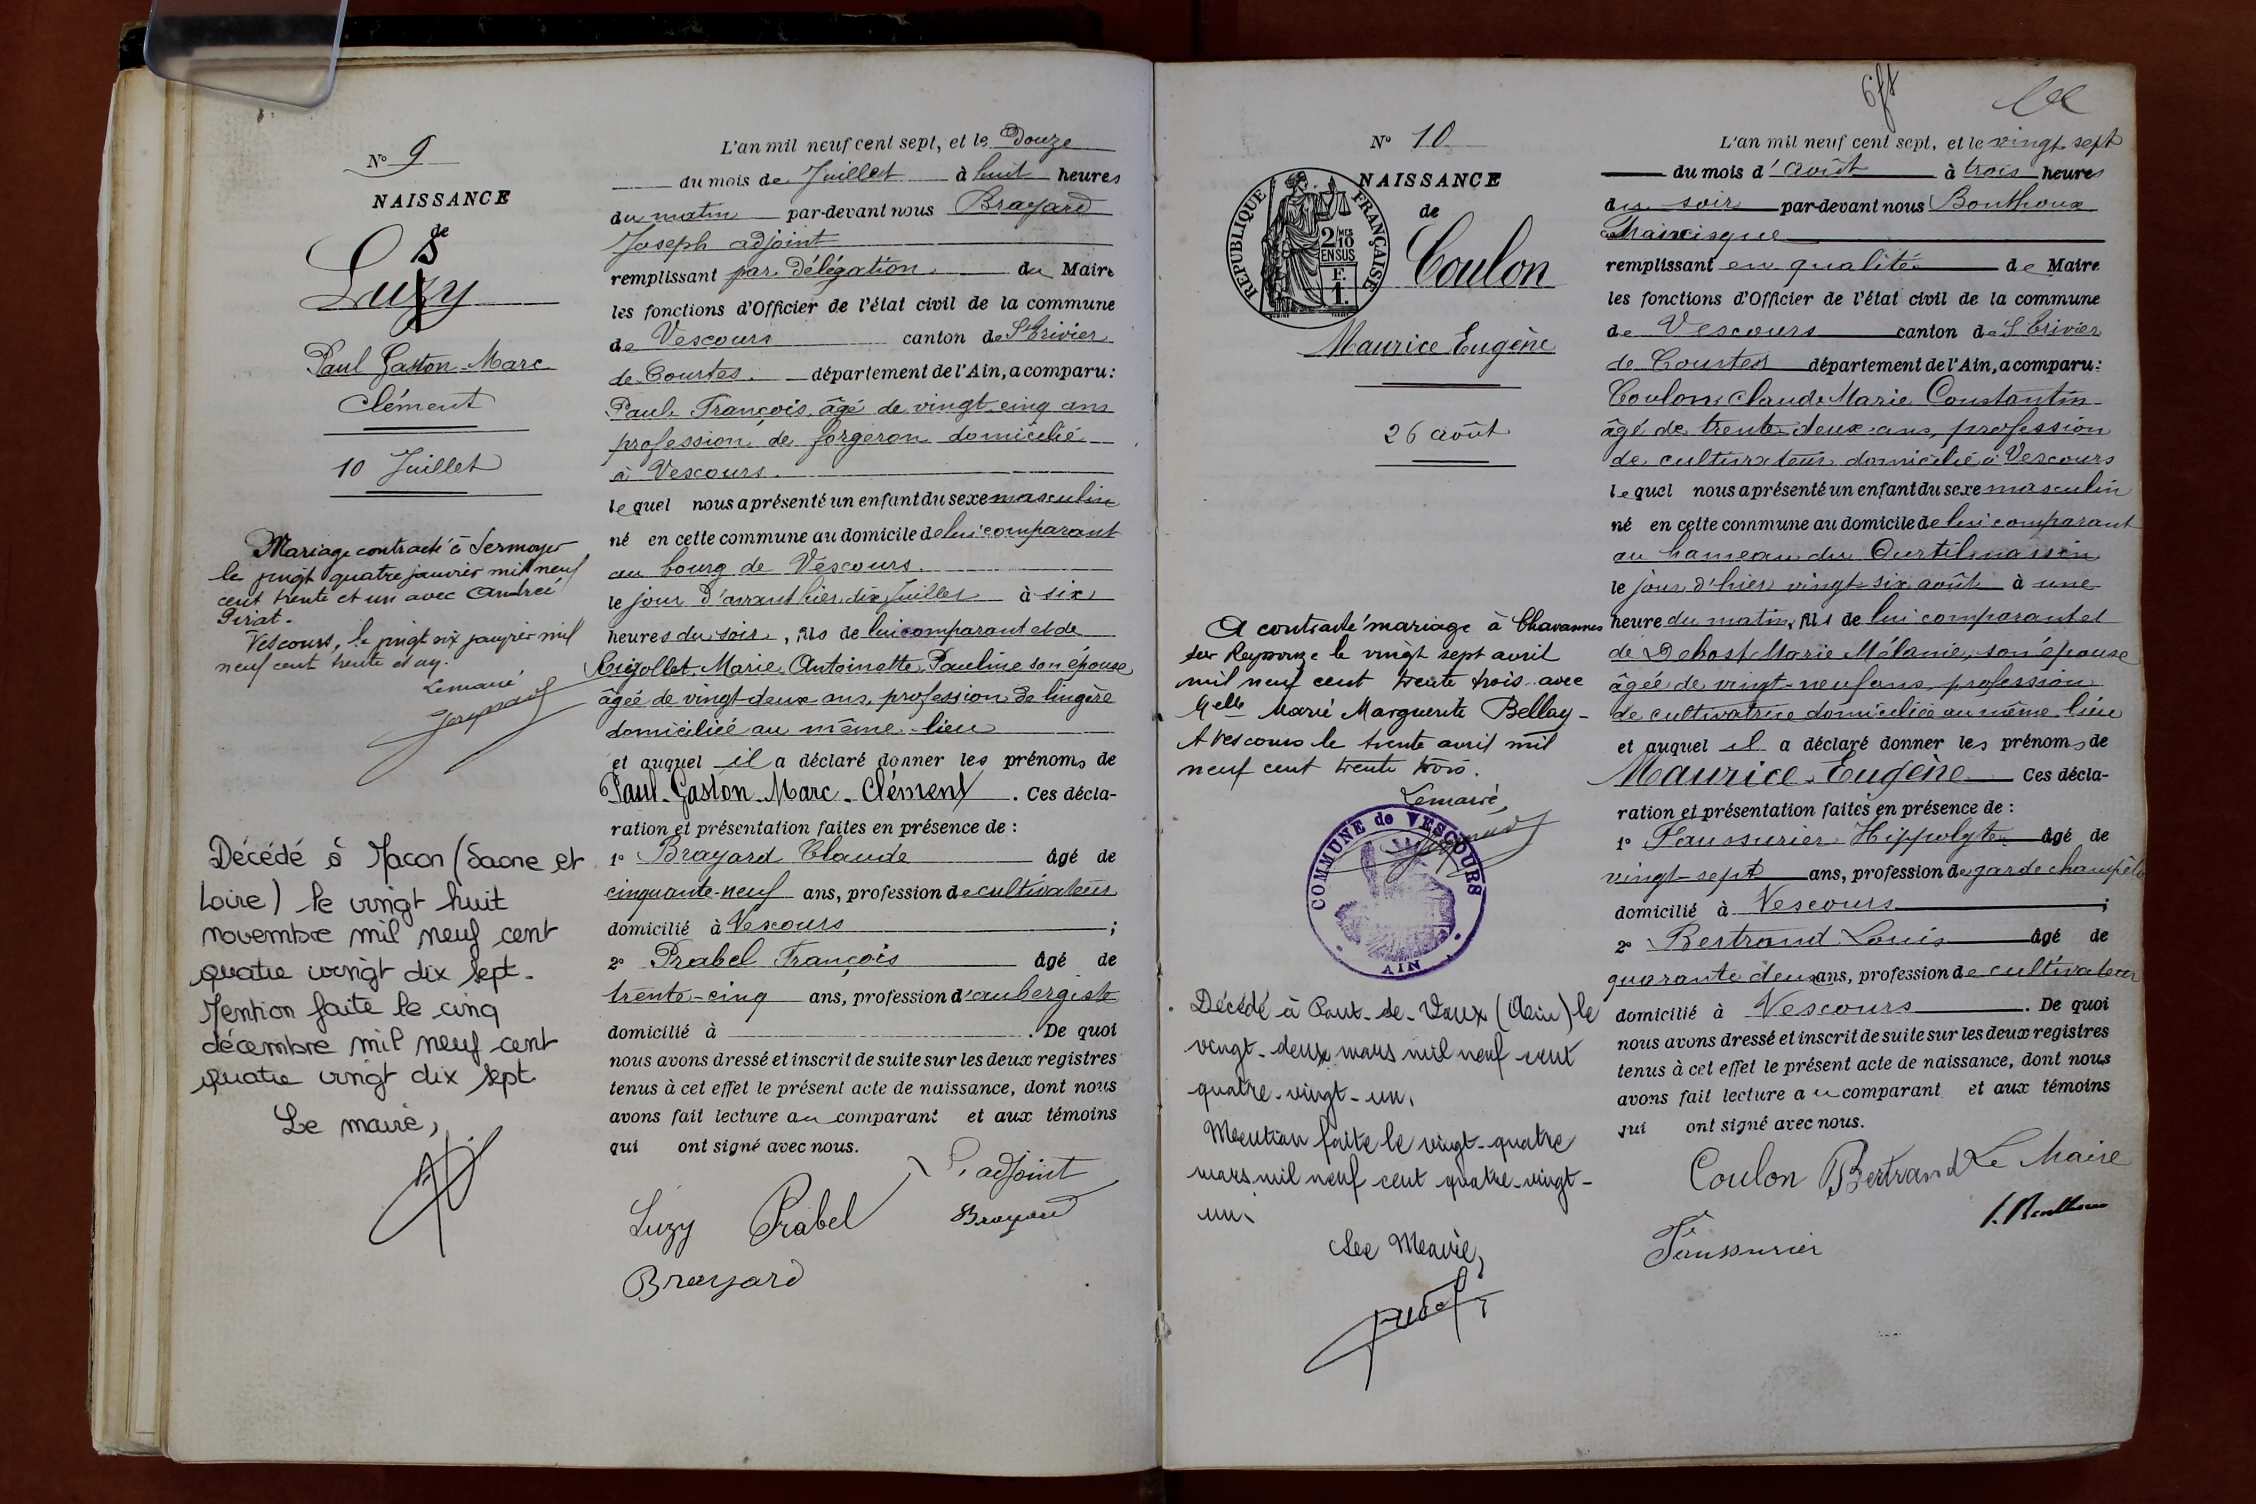 N° 9
NAISSANCE
de
Luzy
S
Paul Gaston Marc
Clément
10 Juillet
Mariage contracté à Sermoyer
le vingt quatre janvier mil neuf
cent trente et un avec Andrée
Vescours, le vingt six janvier mil
neuf cent trente et un.
Le maire
Décédé à Macon (Saone et
Loire) le vingt huit
novembre mil neuf cent
quatre vingt dix sept.
Mention faite le cinq
décembre mil neuf cent
quatre vingt dix sept
Le maire,
L'an mil neuf cent sept, et le Douze
du mois de Juillet à huit heures
du matin par-devant nous Brayard
Joseph adjoint
remplissant par délégation du Maire
les fonctions d'Officier de l'état civil de la commune
de Vescours canton de St Trivier
de Courtes. département de l'Ain, a comparu:
Paul François, âgé de vingt cinq ans
profession de forgeron domicilié
à Vescours.
lequel nous a présenté un enfant du sexe masculin
né en cette commune au domicile de lui comparant
au bourg de Vescours.
le jour d'avant hier dix Juillet à six
heures du soir, fils de lui comparant et de
Rigollet Marie Antoinette Pauline son épouse
âgée de vingt-deux ans, profession de lingère
domiciliée au même lieu
et auquel il a déclaré donner les prénoms de
Paul-Gaston-Marc-Clément. Ces décla-
ration et présentation faites en présence de :
1° Brayard Claude âgé de
cinquante-neuf ans, profession de cultivateur
domicilié à Vescours ;
2° Prabel François âgé de
trente-cinq ans, profession d'aubergiste
domicilié à . De quoi
nous avons dressé et inscrit de suite sur les deux registres
tenus à cet effet le présent acte de naissance, dont nous
avons fait lecture au comparant et aux témoins
qui ont signé avec nous.
L'adjoint
Luzy Prabel Brayard
Brayard
N° 10
NAISSANCE
de
REPUBLIQUE FRANÇAISE
2/10 EN SUS
F. 1.
Coulon
Maurice Eugène
26 août
A contracté mariage à Chavannes
sur Reyssouze le vingt sept avril
mil neuf cent trente trois avec
Melle Marie Marguerite Bellay-
A Vescours le trente avril mil
neuf cent trente trois.
Le maire,
COMMUNE de VESCOURS
AIN
Décédé à Pont-de-Vaux (Ain) le
vingt-deux mars mil neuf cent
quatre-vingt-un.
Mention faite le vingt-quatre
mars mil neuf cent quatre-vingt-
un.
Le Maire,
L'an mil neuf cent sept, et le vingt sept
du mois d'août à trois heures
du soir par-devant nous Bouthoux
Francisque
remplissant en qualité de Maire
les fonctions d'Officier de l'état civil de la commune
de Vescours canton de St Trivier
de Courtes département de l'Ain, a comparu:
Coulon Claude Marie Constantin
âgé de trente deux ans, profession
de cultivateur domicilié à Vescours
lequel nous a présenté un enfant du sexe masculin
né en cette commune au domicile de lui comparant
au hameau du Curtilmassin
le jour d'hier vingt six août à une
heure du matin, fils de lui comparant et
de Debost Marie Mélanie, son épouse
âgée de vingt-neuf ans, profession
de cultivatrice domiciliée au même lieu
et auquel il a déclaré donner les prénoms de
Maurice-Eugène Ces décla-
ration et présentation faites en présence de :
1° Faussurier Hippolyte âgé de
vingt-sept ans, profession de garde champêtre
domicilié à Vescours ;
2° Bertrand Louis âgé de
quarante deux ans, profession de cultivateur
domicilié à Vescours. De quoi
nous avons dressé et inscrit de suite sur les deux registres
tenus à cet effet le présent acte de naissance, dont nous
avons fait lecture au comparant et aux témoins
qui ont signé avec nous.
Coulon Bertrand Le Maire
Faussurier